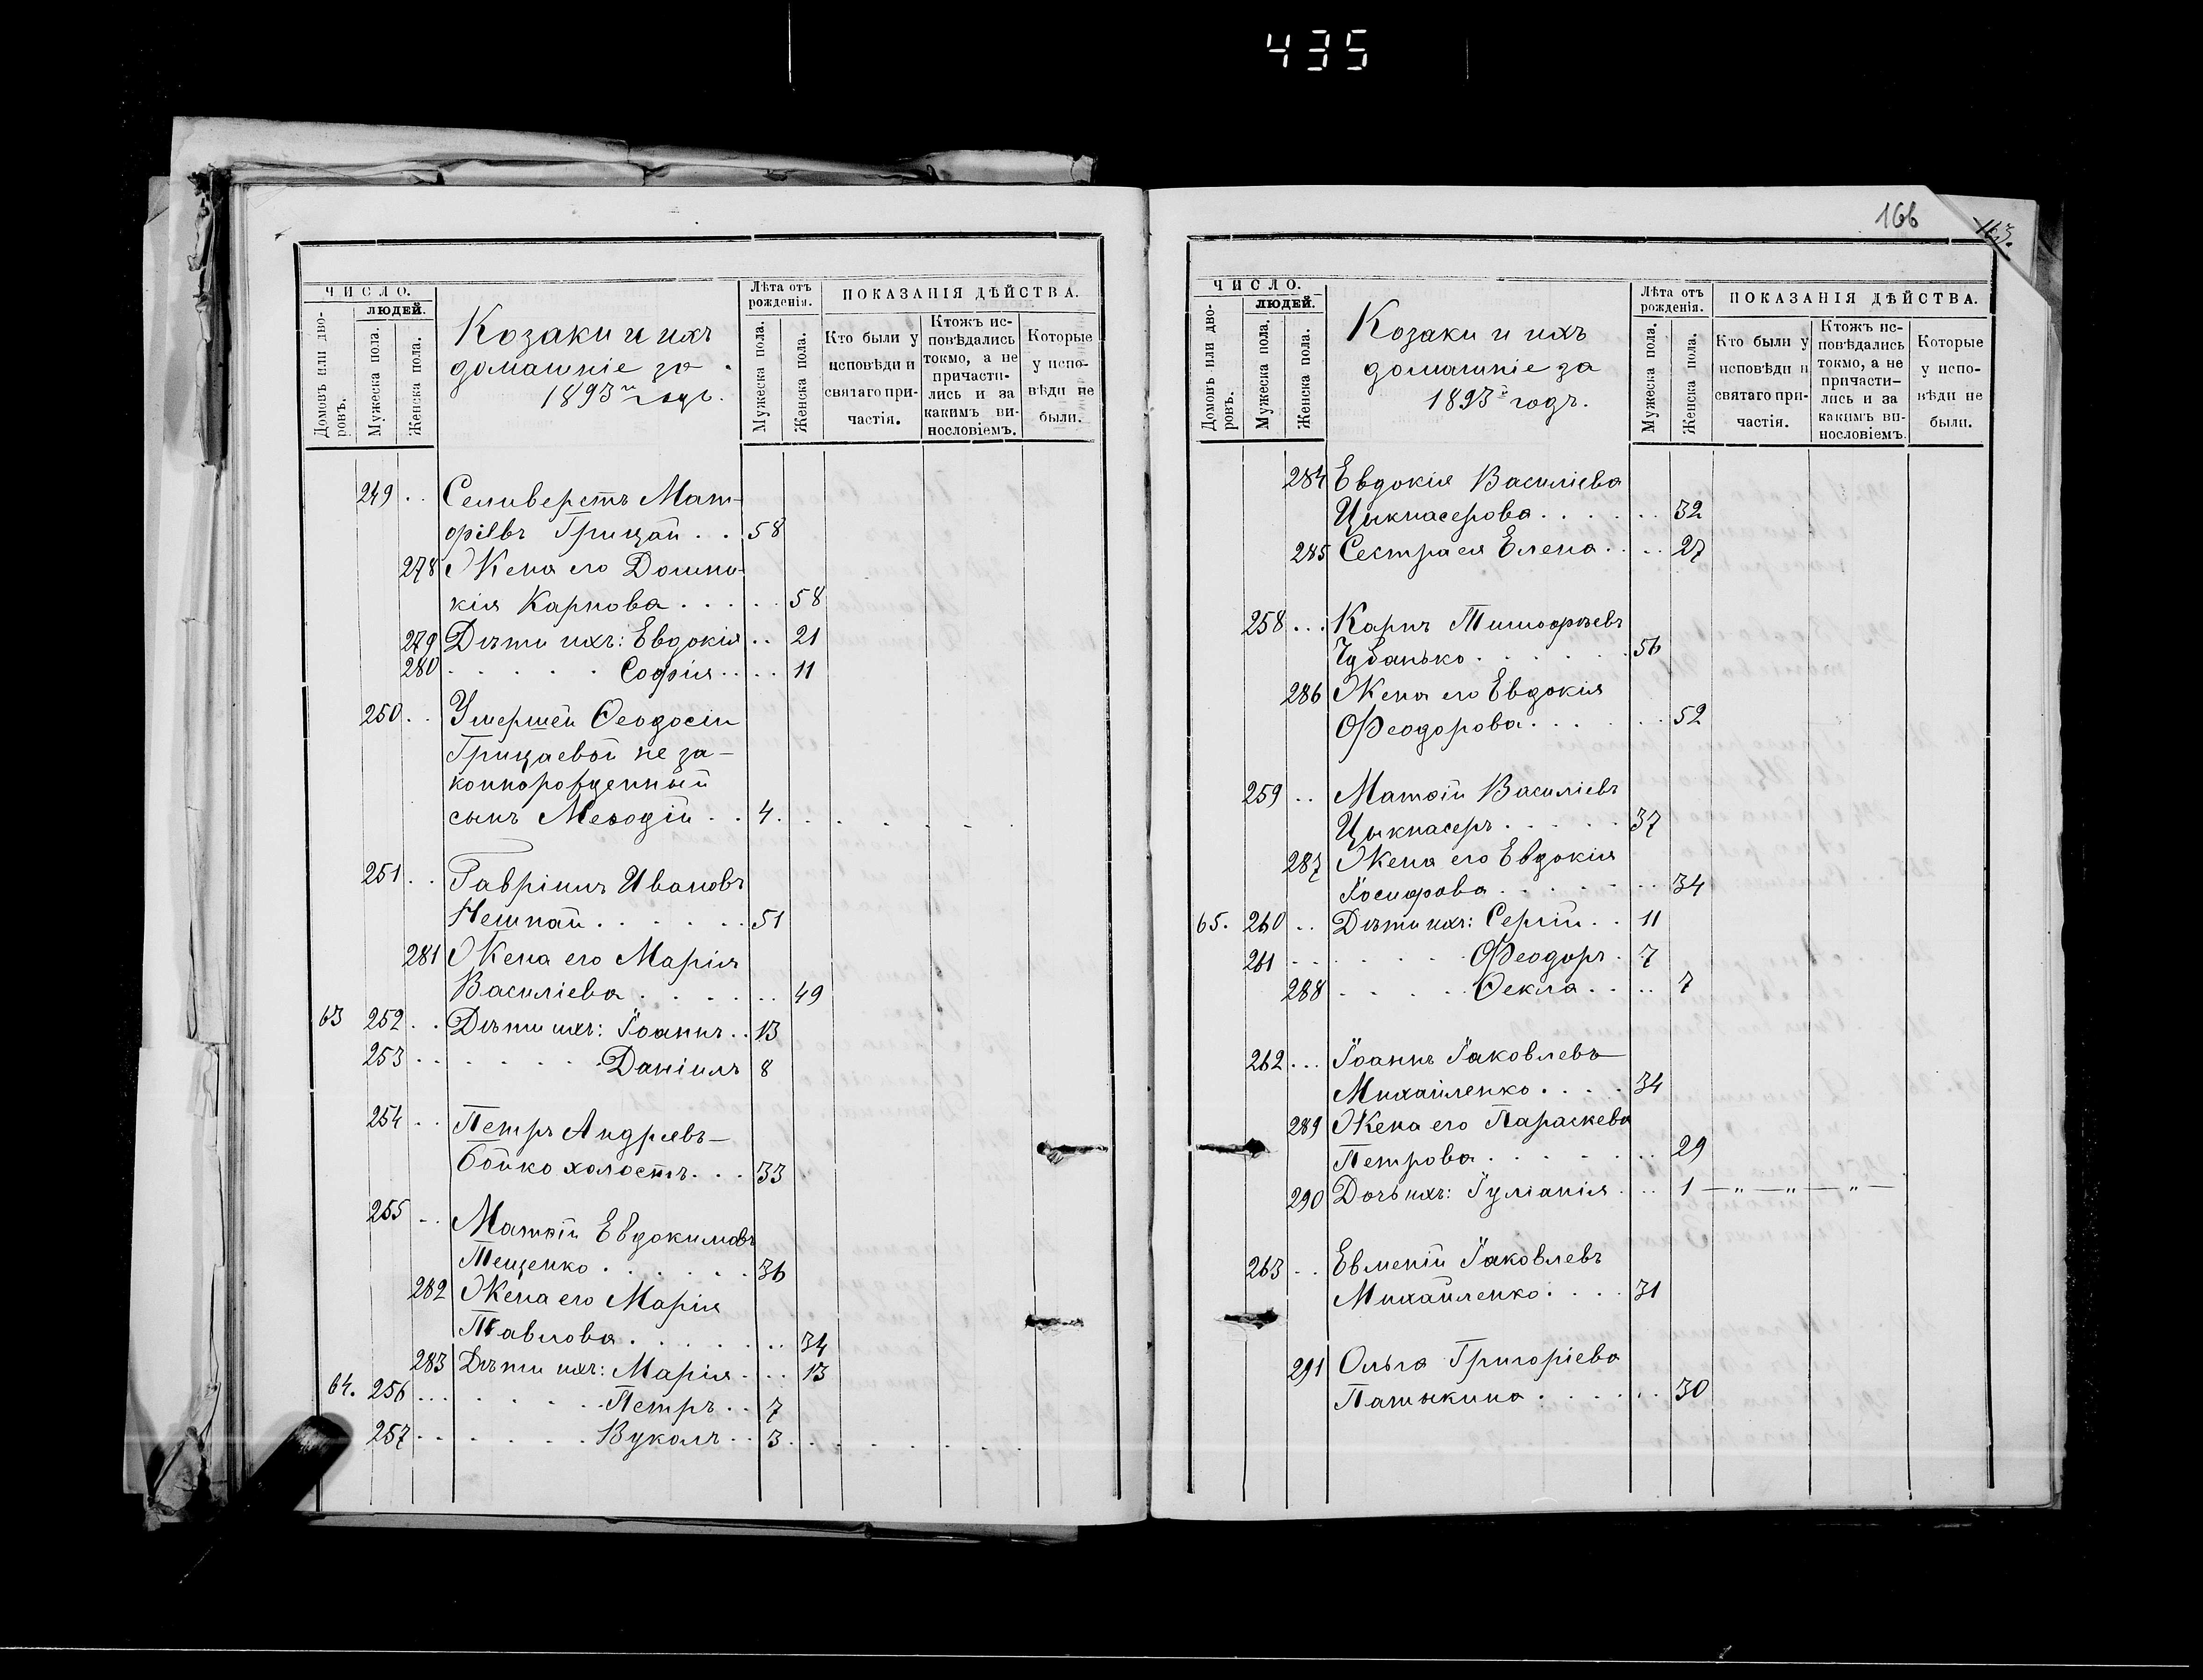 435
ЧИСЛО.
ЛЮДЕЙ.
Домовъ или дво-
ровъ.
Мужеска пола.
Женска пола.
Козаки и ихъ
домашніе за
1893й годъ.
Лѣта отъ
рожденія.
Мужеска пола.
Женска пола.
ПОКАЗАНІЯ ДѢЙСТВА.
Кто были у
исповѣди и
святаго при-
частія.
Ктожъ ис-
повѣдались
токмо, а не
причасти-
лись и за
какимъ ви-
нословіемъ.
Которые
у испо-
вѣди не
были.
249 . . Селиверстъ Мат-
фіевъ Грицай . . 58
278 Жена его Домни-
кія Карпова . . . . . 58
279 Дѣти ихъ: Евдокія . . 21
280 . . . . . Софія . . . . 11
250 . . Умершей Ѳеодосіи
Грицаевой не за-
коннорожденный
сынъ Меѳодій . . 4 . . . . . .
251 . . Гавріилъ Ивановъ
Нешпай . . . . . . 51
281 Жена его Марія
Василіева . . . . . . . 49
63 252 . . Дѣти ихъ: Іоаннъ . . 13
253 . . . . . . . Даніилъ 8
254 . . Петръ Андреевъ—
Бойко холостъ . . . 33
255 . . Матѳій Евдокимовъ
Тещенко . . . . . . 36
282 Жена его Марія
Павлова . . . . . . . 34
283 Дѣти ихъ: Марія . . . . 13
64. 256 . . . . . . . . Петръ . . 7
257 . . . . . . . Вуколъ . . 3 . . . . . . .
166
163.
ЧИСЛО.
ЛЮДЕЙ.
Домовъ или дво-
ровъ.
Мужеска пола.
Женска пола.
Козаки и ихъ
домашніе за
1893й годъ.
Лѣта отъ
рожденія.
Мужеска пола.
Женска пола.
ПОКАЗАНІЯ ДѢЙСТВА.
Кто были у
исповѣди и
святаго при-
частія.
Ктожъ ис-
повѣдались
токмо, а не
причасти-
лись и за
какимъ ви-
нословіемъ.
Которые
у испо-
вѣди не
были.
284 Евдокія Василіева
Цыкнасерова . . . . . . . 32
285 Сестра ея Елена . . . . 27
258 . . . Карпъ Тимофѣевъ
Чубанько . . . . . . 56
286 Жена его Евдокія
Феодорова . . . . . . . 52
259 . . Матѳій Василіевъ
Цыкнасеръ . . . . . 37
287 Жена его Евдокія
Іосифова . . . . . . . 34
65. 260 . . Дѣти ихъ: Сергій . . 11
261 . . . . . . . Феодоръ . 7
288 . . . . . Ѳекла . . . . 7
262 . . . Іоаннъ Іаковлевъ—
Михайленко . . . . 34
289 Жена его Параскева
Петрова . . . . . . . 29
290 Дочь ихъ: Іуліанія . . . 1 — „ — „ — „ —
263 . . Евменій Іаковлевъ
Михайленко . . . . 31
291 Ольга Григоріева
Патыкина . . . . . . . 30